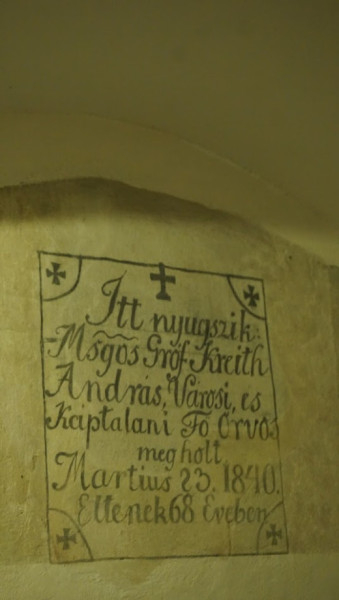 Itt nyugszik:
Msgos Gróf Kreith
András, Városi, es
Káptalani Fő Orvos
megholt
Martius 23. 1840.
Eltenek 68 Eveben